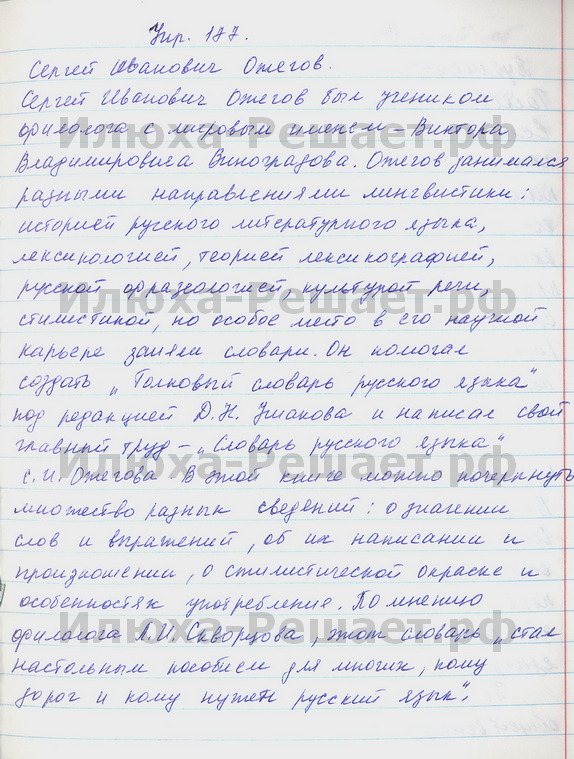 Упр. 187.
Сергей Иванович Ожегов.
Сергей Иванович Ожегов был учеником
филолога с мировым именем – Виктора
Владимировича Виноградова. Ожегов занимался
разными направлениями лингвистики:
историей русского литературного языка,
лексикологией, теорией лексикографией,
русской фразеологией, культурой речи,
стилистикой, но особое место в его научной
карьере заняли словари. Он помогал
создать „Толковый словарь русского языка“
под редакцией Д.Н. Ушакова и написал свой
главный труд – „Словарь русского языка“
С.И. Ожегова. В этой книге можно почерпнуть
множество разных сведений: о значении
слов и выражений, об их написании и
произношении, о стилистической окраске и
особенностях употребления. По мнению
филолога Л.И. Скворцова, этот словарь „стал
настольным пособием для многих, кому
дорог и кому нужен русский язык“.
Илюха-Решает.рф
Илюха-Решает.рф
Илюха-Решает.рф
Илюха-Решает.рф